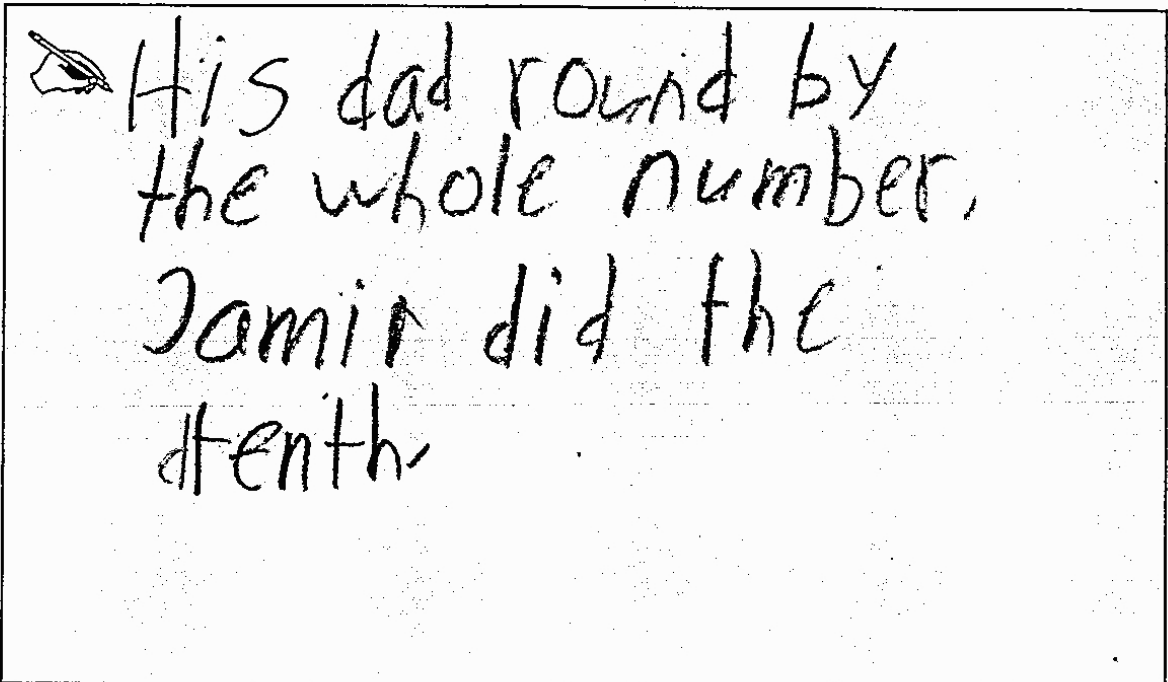 His dad round by
the whole number.
Jamir did the
tenth.